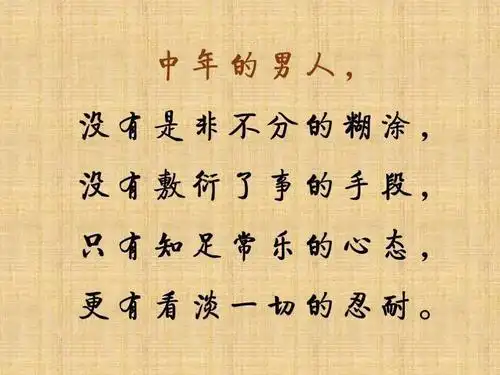 中年的男人，
没有是非不分的糊涂，
没有敷衍了事的手段，
只有知足常乐的心态，
更有看淡一切的忍耐。